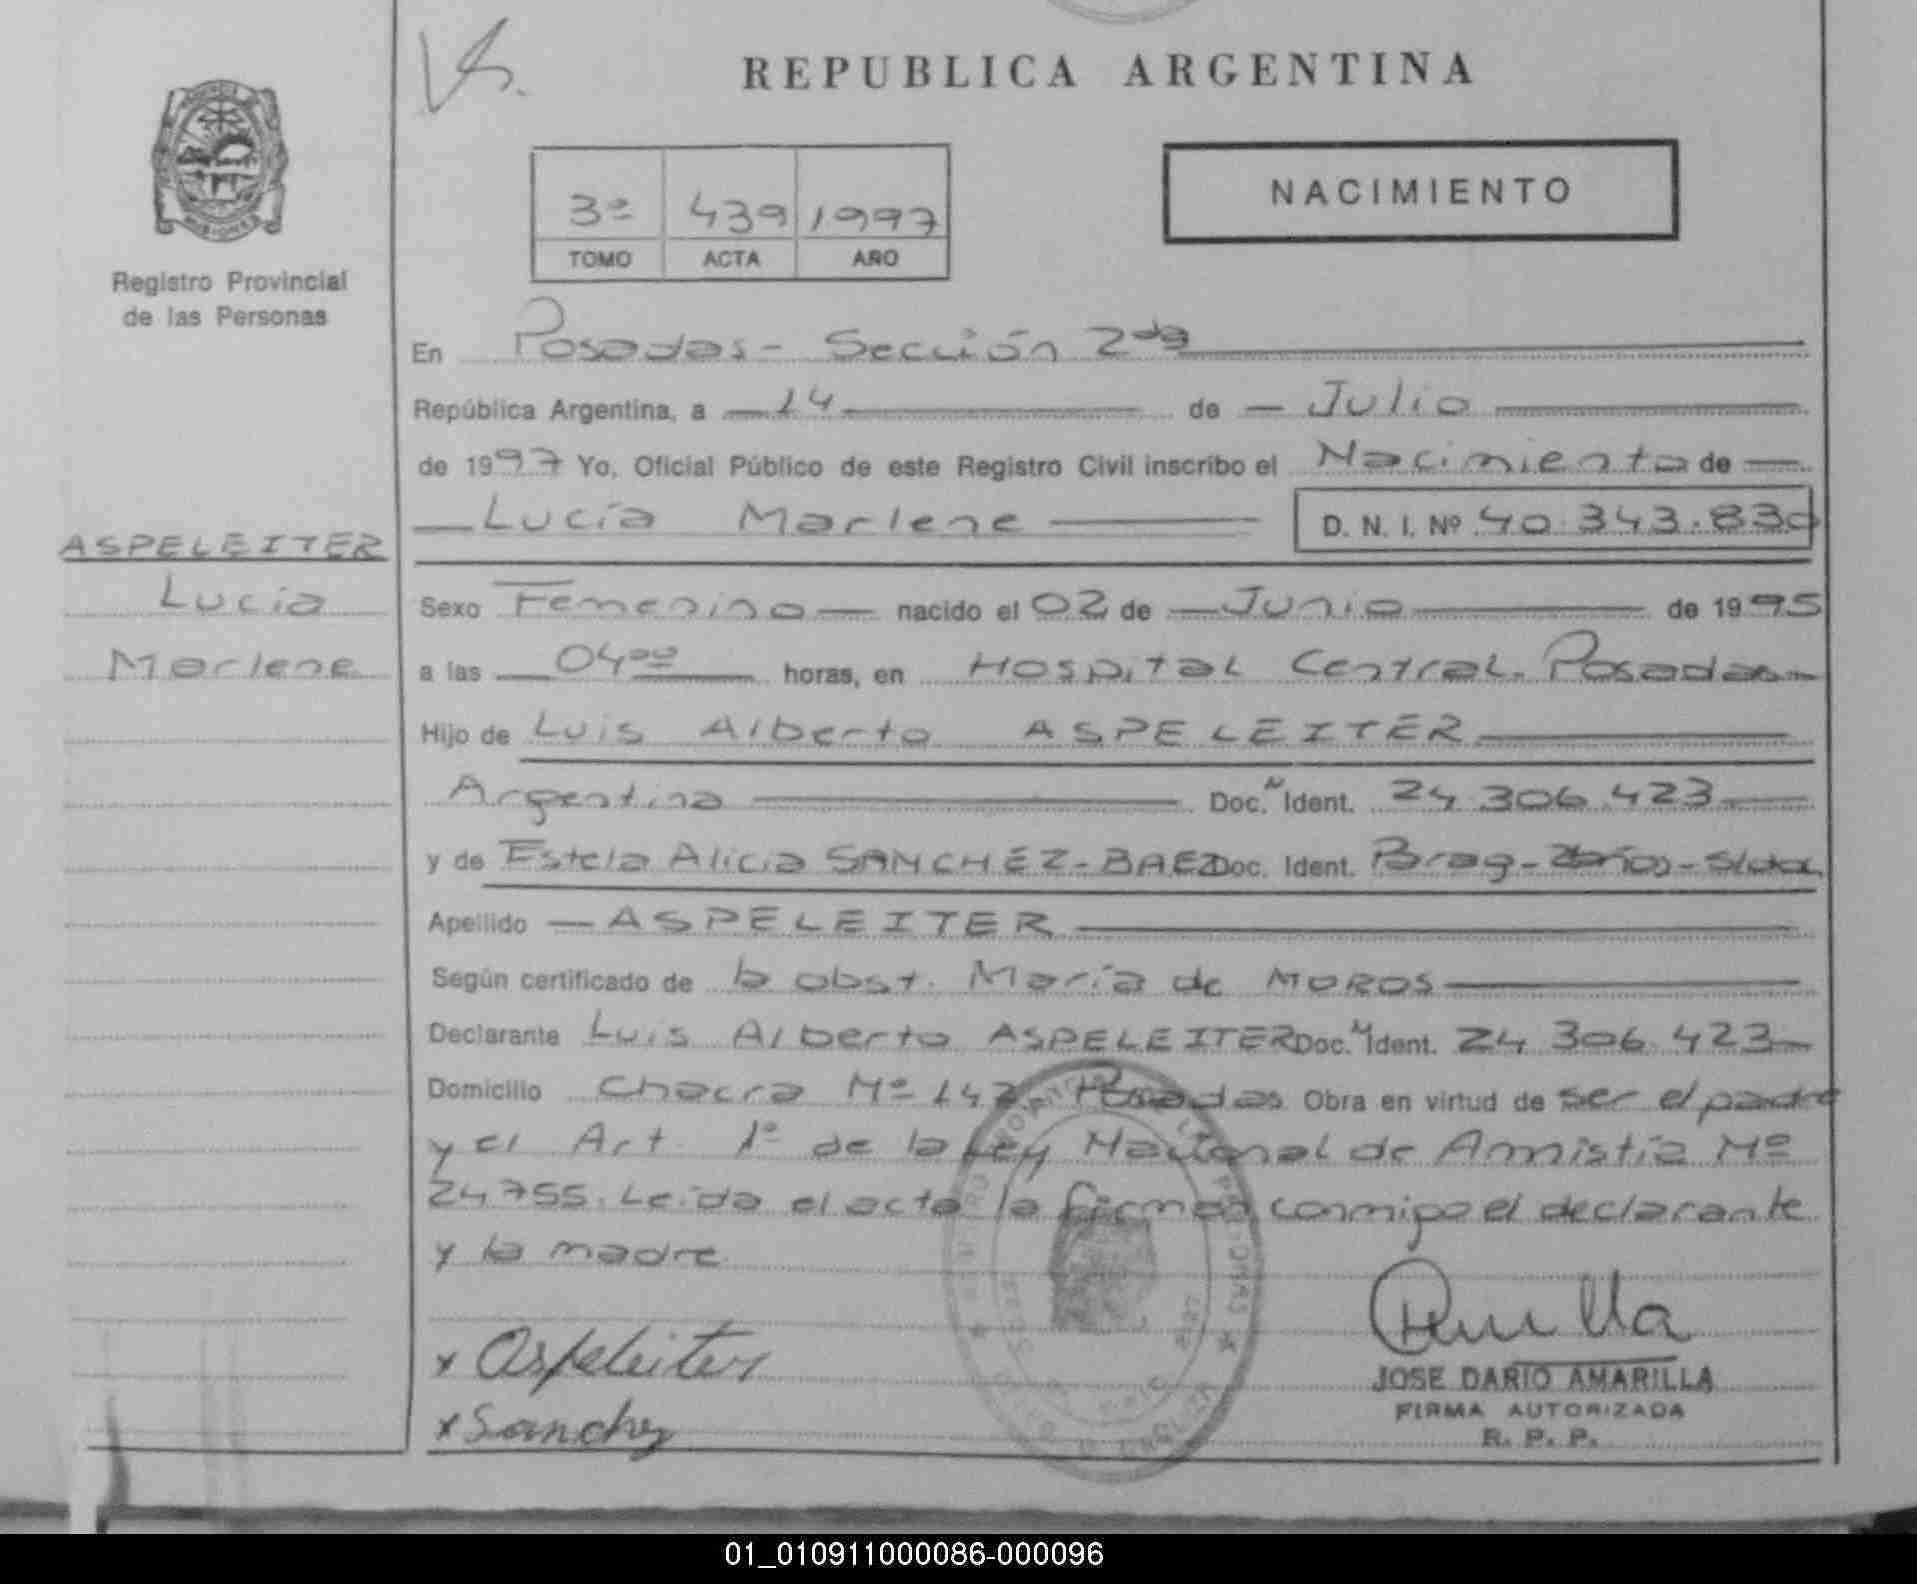 REPUBLICA ARGENTINA
NACIMIENTO
3º 439 1997
TOMO ACTA AÑO
Registro Provincial
de las Personas
En Posadas - Sección 2da
República Argentina, a 14 de Julio
de 1997 Yo, Oficial Público de este Registro Civil inscribo el Nacimiento de
Lucía Marlene D. N. I. Nº 40.343.830
ASPELEITER
Lucía
Marlene
Sexo Femenino nacido el 02 de Junio de 1995
a las 04ºº horas, en Hospital Central. Posadas
Hijo de Luis Alberto ASPELEITER
Argentina Doc. N Ident. 24.306.423
y de Estela Alicia SANCHEZ-BAEZ Doc. Ident. Parag-
Apellido ASPELEITER
Según certificado de la obst. María de MOROS
Declarante Luis Alberto ASPELEITER Doc. N Ident. 24.306.423
Domicilio Chacra Nº Posadas Obra en virtud de ser el padre
y el Art. 1º de la Ley Nacional de Amnistía Nº
24755. Leída el acta la firman conmigo el declarante
y la madre.
x Aspeleiter
x Sanchez
JOSE DARIO AMARILLA
FIRMA AUTORIZADA
R. P. P.
01_010911000086-000096